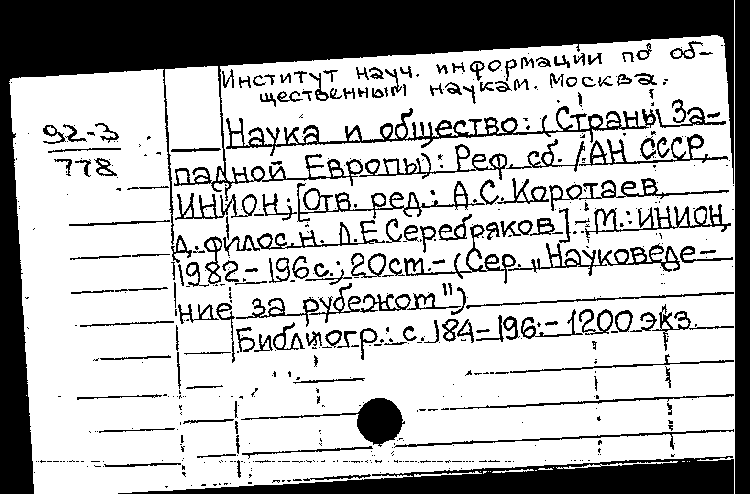 Институт науч. информации по об-
щественным наукам. Москва.
92-3
778
Наука и общество: (Страны За-
падной Европы): Реф. сб. / АН СССР,
ИНИОН; [Отв. ред.: А.С. Коротаев,
д. филос. н. Л.Е. Серебряков]. - М.: ИНИОН,
1982. - 196 с.; 20 см. - (Сер. „Науковеде-
ние за рубежом")
Библиогр.: с. 184-196. - 1200 экз.